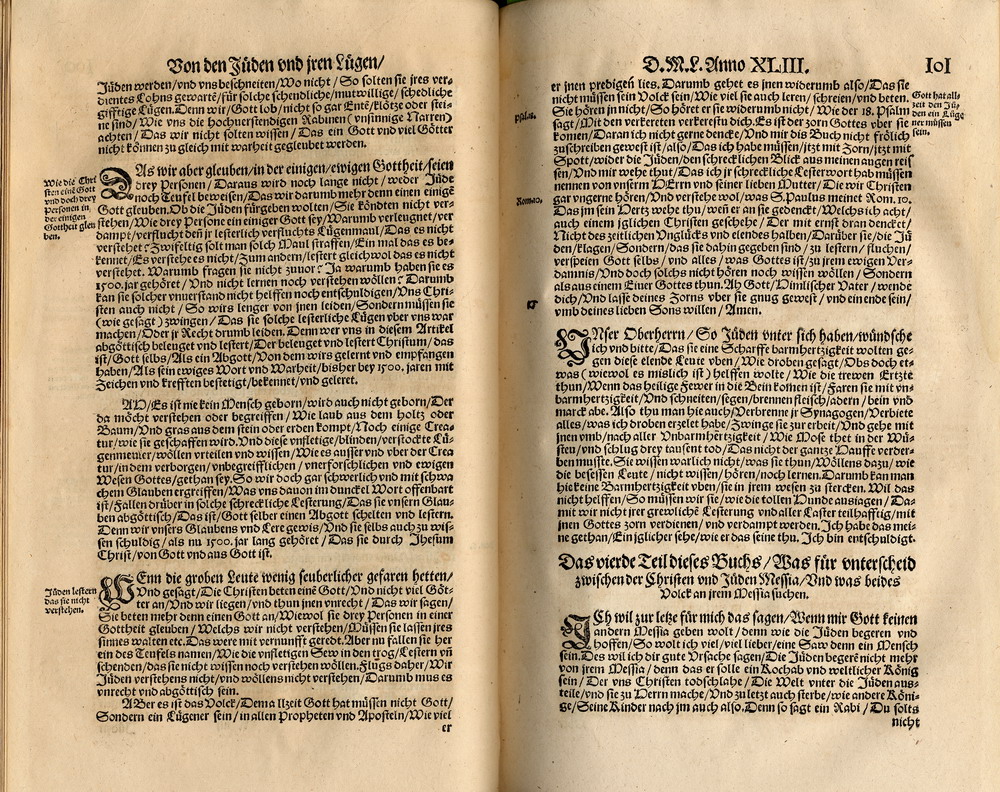 Von den Jüden vnd jren Lügen/
Jüden werden/vnd vns beschneiten/Wo nicht / So solten sie jres ver-
dientes Lohns gewarte/für solche schendliche/mutwillige/schedliche
gifftige Lügen. Denn wir/Gott lob/nicht so gar Ente/klötze oder stei-
ne sind/ Wie vns die hochuerstendigen Rabinen (vnsinnige Narren)
achten/ Das wir nicht solten wissen/ Das ein Gott vnd viel Götter
nicht können zu gleich mit warheit gegleubet werden.
Wie die Chri
sten eine Gott
vnd doch drey
Personen in
der einigen
Gottheit gleu
ben.
DAs wir aber gleuben/in der einigen/ewigen Gottheit/seien
drey Personen/ Daraus wird noch lange nicht/weder Jüde
noch Teufel beweisen/Das wir darumb mehr denn einen einigē
Gott gleuben. Ob die Jüden fürgeben wolten/Sie köndten nicht ver-
stehen/Wie drey Persone ein einiger Gott sey/Warumb verleugnet/ver
dampt/verflucht denn jr lesterlich verfluchts Lügenmaul/Das es nicht
verstehet? Zwifeltig solt man solch Maul straffen/Ein mal das es be-
kennet/Es verstehe es nicht/Zum andern/lestert gleichwol das es nicht
verstehet. Warumb fragen sie nicht zuuor? Ja warumb haben sie es
1500. jar gehöret/ Vnd nicht lernen noch verstehen wöllen? Darumb
kan sie solcher vnuerstand nicht helffen noch entschüldigen/Vns Chri-
sten auch nicht / So wirs lenger von jnen leiden/Sondern müssen sie
(wie gesagt) zwingen/ Das sie solche lesterliche Lügen vber vns war
machen/Oder jr Recht drumb leiden. Denn wer vns in diesem Artikel
abgöttisch beleuget vnd lestert/Der beleuget vnd lestert Christum/das
ist/Gott selbs/Als ein Abgott/Von dem wirs gelernt vnd empfangen
haben/Als sein ewiges Wort vnd Warheit/bisher bey 1500. jaren mit
Zeichen vnd krefften bestetigt/bekennet/vnd geleret.
AD/Es ist nie kein Mensch geborn/wird auch nicht geborn/Der
da möcht verstehen oder begreiffen / Wie laub aus dem holtz oder
Baum/Vnd gras aus dem stein oder erden kompt/Noch einige Crea-
tur/wie sie geschaffen wird. Vnd diese vnfletige/blinden/verstockte Lü-
genmeuler/wöllen vrteilen vnd wissen/Wie es ausser vnd vber der Crea
tur/in dem verborgen/vnbegreifflichen / vnerforschlichen vnd ewigen
Wesen Gottes/gethan sey. So wir doch gar schwerlich vnd mit schwa
chem Glauben ergreiffen/Was vns dauon im dunckel Wort offenbart
ist/Fallen drüber in solche schreckliche Lesterung/Das sie vnsern Glau-
ben abgöttisch/Das ist/Gott selber einen Abgott schelten vnd lestern.
Denn wir vnsers Glaubens vnd Lere gewis/Vnd sie selbs auch zu wis-
sen schüldig/als nu 1500. jar lang gehöret/Das sie durch Jhesum
Christ/von Gott vnd aus Gott ist.
Jüden lestern
das sie nicht
verstehen.
WEnn die groben Leute wenig seuberlicher gefaren hetten/
Vnd gesagt/Die Christen beten eine Gott/Vnd nicht viel Göt-
ter an/Vnd wir liegen/vnd thun jnen vnrecht/Das wir sagen/
Sie beten mehr denn einen Gott an/Wiewol sie drey Personen in einer
Gottheit gleuben/ Welchs wir nicht verstehen/Müssen sie lassen jres
sinnes walten etc. Das were mit vernunfft geredt. Aber nu fallen sie her
ein des Teufels namen/Wie die vnfletigen Sew in den trog/Lestern vñ
schenden/das sie nicht wissen noch verstehen wöllen. Flugs daher/Wir
Jüden verstehens nicht/vnd wöllens nicht verstehen/Darumb mus es
vnrecht vnd abgöttisch sein.
ABer es ist das Volck/Dem allzeit Gott hat müssen nicht Gott/
Sondern ein Lügener sein/in allen Propheten vnd Aposteln/Wie viel
er
D. M. L. Anno XLIII. 101
er jnen predigen lies. Darumb gehet es jnen widerumb also/Das sie
nicht müssen sein Volck sein/Wie viel sie auch leren/schreien/vnd beten.
Sie hören jn nicht/So höret er sie widerumb nicht/Wie der 18. Psalm
sagt/Mit den verkereten verkerestu dich. Es ist der zorn Gottes vber sie
komen/Daran ich nicht gerne dencke/Vnd mir dis Buch nicht frölich
zuschreiben gewest ist/also/Das ich habe müssen/jtzt mit Zorn/jtzt mit
Spott/wider die Jüden/den schrecklichen Blick aus meinen augen reis
sen/Vnd mir wehe thut/Das ich jr schreckliche Lesterwort hab müssen
nennen von vnserm HErrn vnd seiner lieben Mutter/Die wir Christen
gar vngerne hören/Vnd verstehe wol/was S. Paulus meinet Rom. 10.
Das jm sein Hertz wehe thu/wen er an sie gedenckt/Welchs ich acht/
auch einem jglichen Christen geschehe/ Der mit ernst dran dencket/
Nicht des zeitlichen Vnglücks vnd elendes halben/Darüber sie/die Jü
den/klagen/Sondern/das sie dahin gegeben sind/zu lestern/fluchen/
verspeien Gott selbs/vnd alles/was Gottes ist/zu jrem ewigen Ver-
damnis/Vnd doch solchs nicht hören noch wissen wöllen/Sondern
als aus einem Eiuer Gottes thun. Ah Gott/Himlischer Vater/wende
dich/Vnd lasse deines Zorns vber sie gnug gewest/vnd ein ende sein/
vmb deines lieben Sons willen/Amen.
Psalm.
Roman.
Gott hat all-
zeit den Jü-
den ein Lüge
ner müssen
sein.
VNser Oberherrn / So Jüden vnter sich haben/wündsche
ich vnd bitte/Das sie eine Scharffe barmhertzigkeit wolten ge-
gen diese elende Leute vben/Wie droben gesagt/Obs doch et-
was (wiewol es mislich ist) helffen wolte / Wie die trewen Ertzte
thun/Wenn das heilige Fewer in die Bein komen ist/Faren sie mit vn-
barmhertzigkeit/Vnd schneiten/segen/brennen fleisch/adern/bein vnd
marck abe. Also thu man hie auch/Verbrenne jr Synagogen/Verbiete
alles/was ich droben erzelet habe/Zwinge sie zur erbeit/Vnd gehe mit
jnen vmb/nach aller Vnbarmhertzigkeit / Wie Mose thet in der Wü-
sten/vnd schlug drey tausent tod/Das nicht der gantze Hauffe verder-
ben muste. Sie wissen warlich nicht/was sie thun/Wöllens dazu/wie
die besessen Leute/nicht wissen/hören/noch lernen. Darumb kan man
hie keine Barmhertzigkeit vben/sie in jrem wesen zu stercken. Wil das
nicht helffen/So müssen wir sie/wie die tollen Hunde ausiagen/Da-
mit wir nicht jrer grewliche Lesterung vnd aller Laster teilhafftig/mit
jnen Gottes zorn verdienen/vnd verdampt werden. Ich habe das mei-
ne gethan/Ein jglicher sehe/wie er das seine thu. Ich bin entschuldigt.
Das vierde Teil dieses Buchs/Was für vnterscheid
zwischen der Christen vnd Jüden Messia/Vnd was beides
Volck an jrem Messia suchen.
ICh wil zur letze für mich das sagen/Wenn mir Gott keinen
andern Messia geben wolt/denn wie die Jüden begeren vnd
hoffen/So wolt ich viel/viel lieber/eine Saw denn ein Mensch
sein. Des wil ich dir gut Vrsache sagen/Die Jüden begerē nicht mehr
von jrem Messia / denn das er solle ein Kochab vnd weltlicher König
sein / Der vns Christen todschlahe / Die Welt vnter die Jüden aus-
teile/vnd sie zu Herrn mache/Vnd zu letzt auch sterbe/wie andere Köni-
ge/Seine Kinder nach jm auch also. Denn so sagt ein Rabi / Du solts
nicht